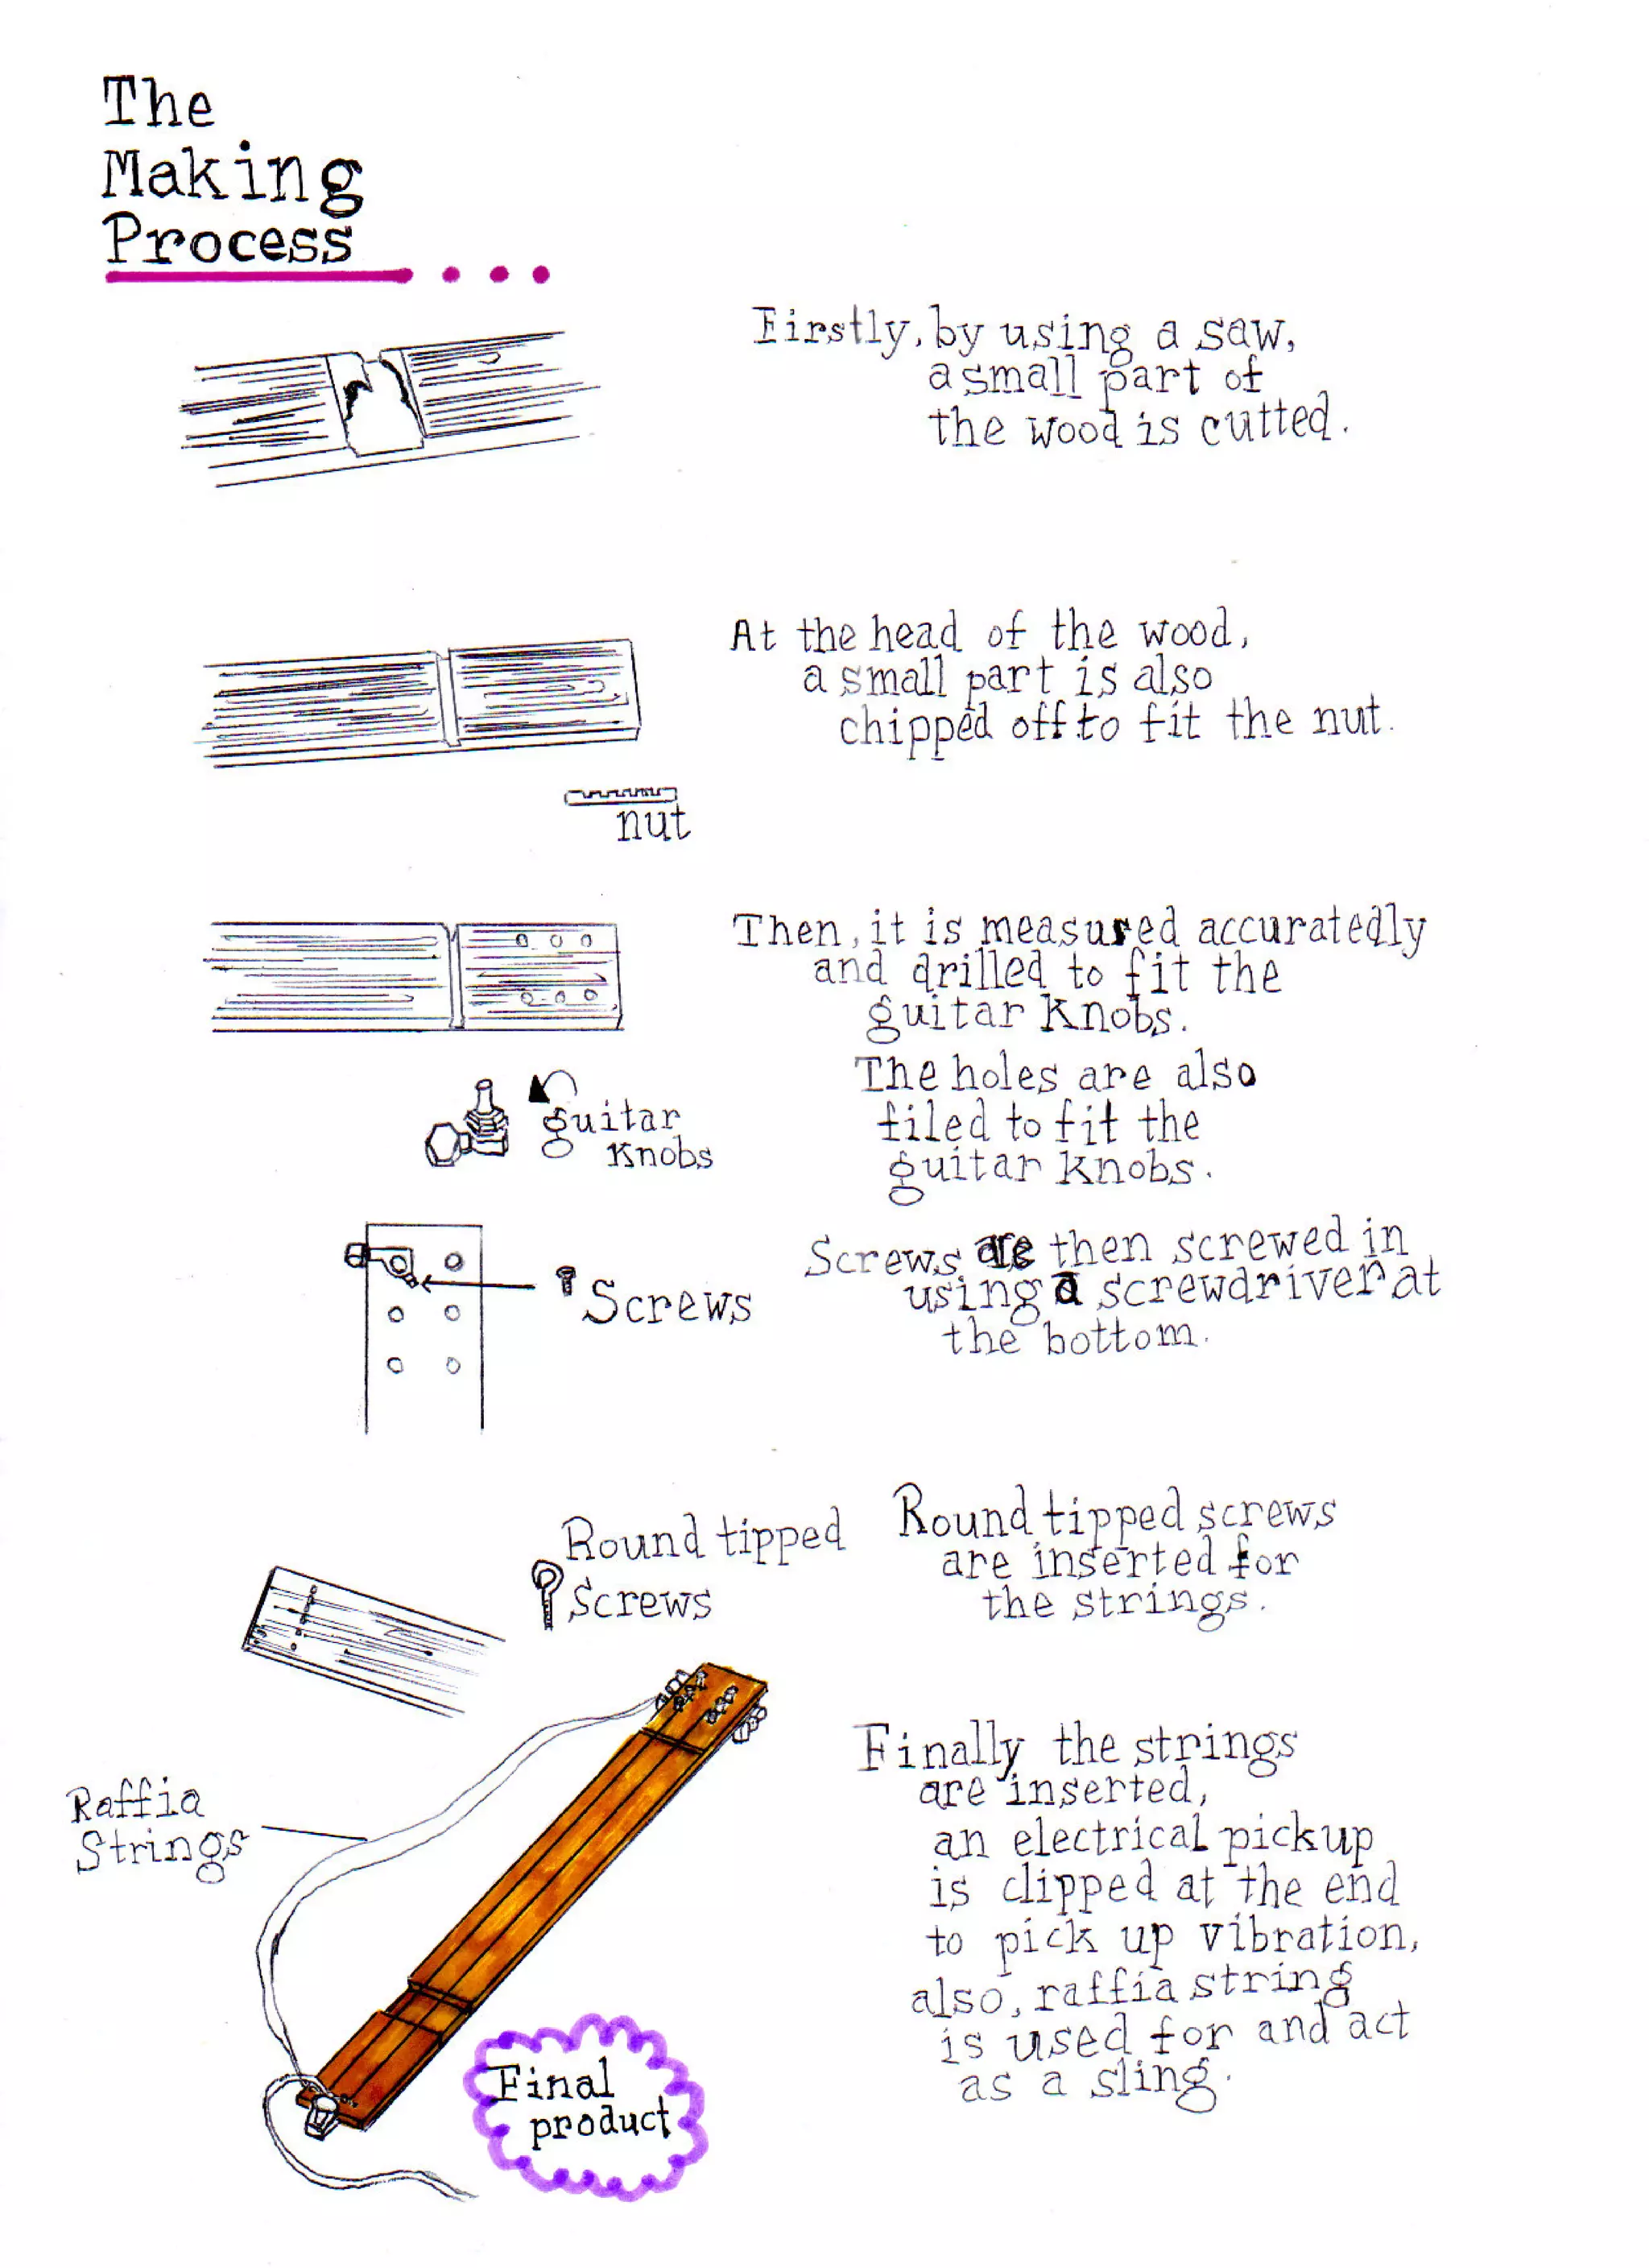 The
Making
Process....
Firstly, by using a saw,
a small part of
the wood is cutted.
At the head of the wood,
a small part is also
chipped off to fit the nut.
nut
Then, it is measured accuratedly
and drilled to fit the
guitar knobs.
The holes are also
filed to fit the
guitar knobs.
guitar
knobs
Screws are then screwed in
using a screwdriver at
the bottom.
Screws
Round tipped
Screws
Round tipped screws
are inserted for
the strings.
Raffia
Strings
Finally the strings
are inserted,
an electrical pickup
is clipped at the end
to pick up vibration,
also, raffia string
is used for and act
as a sling.
Final
product